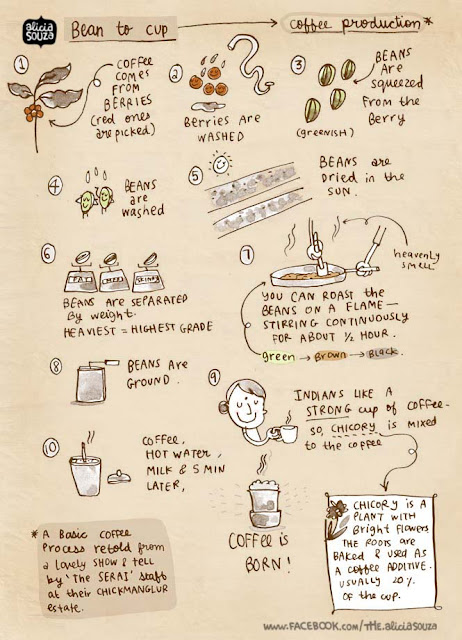 alicia
souza
Bean to cup
coffee production*
1
COFFEE
COMES
FROM
BERRIES
(red ones
are picked)
2
Berries are
WASHED
3
BEANS
ARE
squeezed
From the
Berry
(greenish)
4
BEANS
are
washed
5
BEANS are
Dried in the
SUN.
6
FAT
MED
SKINNY
BEANS are separated
By weight.
Heaviest = Highest grade
7
heavenly
smell
YOU CAN ROAST the
BEANS ON a flame –
STIRRING CONTINUOUSLY
FOR ABOUT ½ HOUR.
green → Brown → Black.
8
BEANS are
GROUND.
9
INDIANS LIKE A
STRONG cup of coffee-
so, CHICORY is mixed
to the coffee
10
COFFEE,
HOT WATER,
MILK & 5 MIN
LATER,
COFFEE is
BORN!
CHICORY is a
PLANT WITH
Bright Flowers
THE ROOTS are
BAKED & USED AS
A COFFEE ADDITIVE.
USUALLY 20%
OF the cup.
* A Basic coffee
Process retold from
a lovely SHOW & TELL
by 'THE SERAI' staff
at their CHICKMANGLUR
estate.
www.FACEBOOK.com/THE.aliciasouza